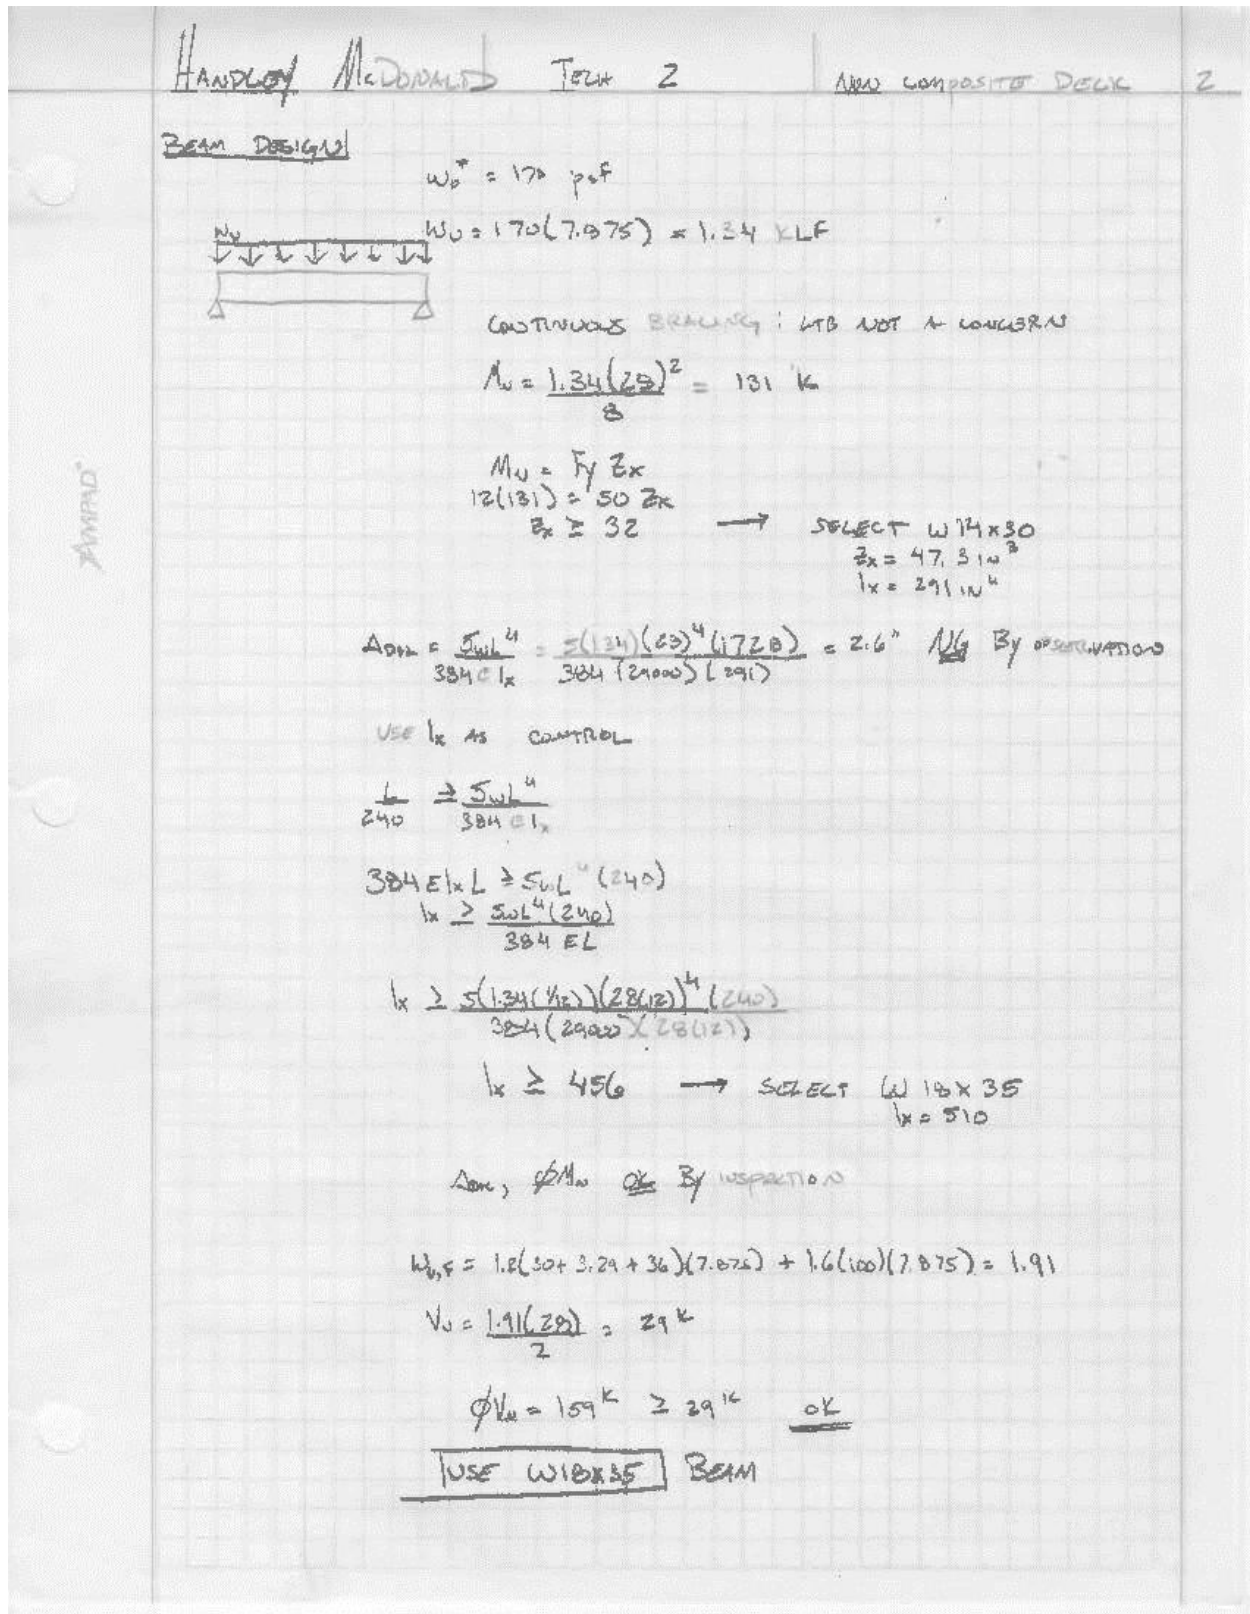 HANDLEY McDONALD TECH 2 NON COMPOSITE DECK 2
BEAM DESIGN
W_D* = 170 psf
W_U W_U = 170(7.875) = 1.34 KLF
CONTINUOUS BRACING : LTB NOT A CONCERN
M_U = 1.34(28)² / 8 = 131 'K
M_U = Fy Zx
12(131) = 50 Zx
Zx ≥ 32 → SELECT W14x30
Zx = 47.3 IN³
Ix = 291 IN⁴
Δ = 5wL⁴ / 384 E Ix = 5(1.34)(28)⁴(1728) / 384(29000)(291) = 2.6" NG By OBSERVATION
USE Ix AS CONTROL
L / 240 ≥ 5wL⁴ / 384 E Ix
384 E Ix L ≥ 5wL⁴(240)
Ix ≥ 5wL⁴(240) / 384 EL
Ix ≥ 5(1.34(1/12))(28(12))⁴(240) / 384(29000)(28(12))
Ix ≥ 456 → SELECT W 18 x 35
Ix = 510
, ØMn OK By INSPECTION
W_U,F = 1.2(30+ 3.29 + 36)(7.875) + 1.6(100)(7.875) = 1.91
V_U = 1.91(28) / 2 = 29 K
ØVn = 159 K ≥ 29 K OK
USE W18x35 BEAM
AMPAD